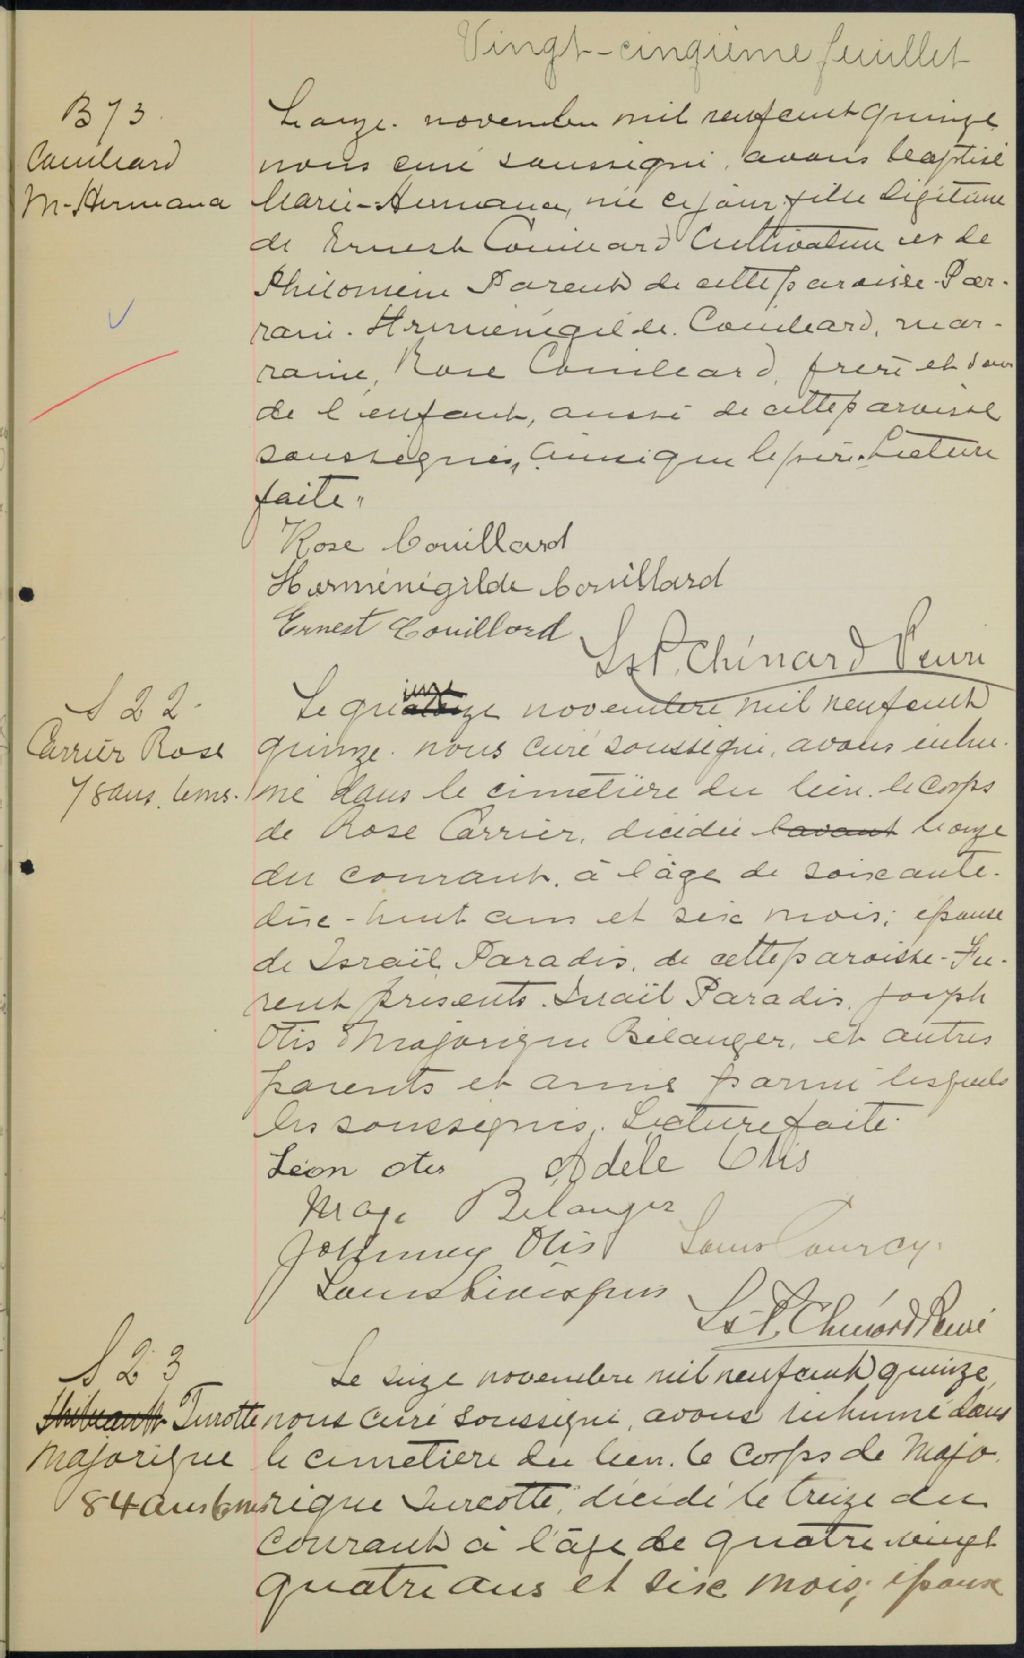 Vingt-cinqième feuillet
B 73.
Couillard
M-Hermana
Le onze novembre mil neuf cent quinze
nous curé soussigné, avons baptisé
Marie-Hermana, née ce jour fille légitime
de Ernest Couillard Cultivateur et de
Philomène Parent de cette paroisse. Par-
rain. Herménégilde Couillard, mar-
raine, Rose Couillard, frère et sœur
de l'enfant, aussi de cette paroisse
soussignés, ainsi que le père. Lecture
faite.,
Rose Couillard
Herménégilde Couillard
Ernest Couillard
Ls P. Chénard Ptre curé
S 22.
Carrier Rose
78 ans. 6 ms.
Le quinze novembre mil neuf cent
quinze. nous curé soussigné, avons inhu-
mé dans le cimetière du lieu. le corps
de Rose Carrier, décédée avant le onze
du courant, à l'âge de soixante-
dix-huit ans et six mois; épouse
de Israël Paradis, de cette paroisse-Fu-
rent présents. Israël Paradis, Joseph
Otis Majorique Bélanger, et autres
parents et amis parmi lesquels
les soussignés. Lecture faite.
Léon Otis Adèle Otis
Maj. Bélanger
Johnney Otis Louis
Louis
Ls P. Chénard Ptre curé
S 23
Turcotte
Majorique
84 ans 6 ms
Le seize novembre mil neuf cent quinze,
nous curé soussigné, avons inhumé dans
le cimetière du lieu. le corps de Majo-
rique Turcotte, décédé le treize du
courant à l'âge de quatre-vingt
quatre ans et six mois; époux